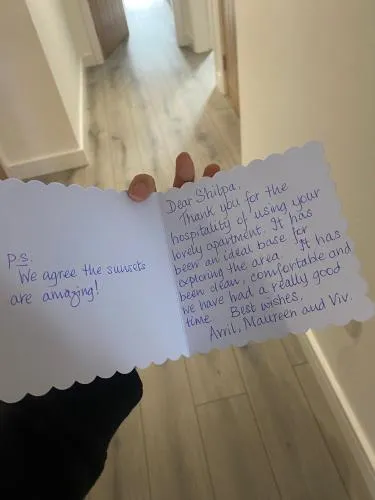 P.S.
We agree the sunsets
are amazing!
Dear Shilpa,
Thank you for the
hospitality of using your
lovely apartment. It has
been an ideal base for
exploring the area. It has
been clean, comfortable and
we have had a really good
time. Best wishes,
Avril, Maureen and Viv.